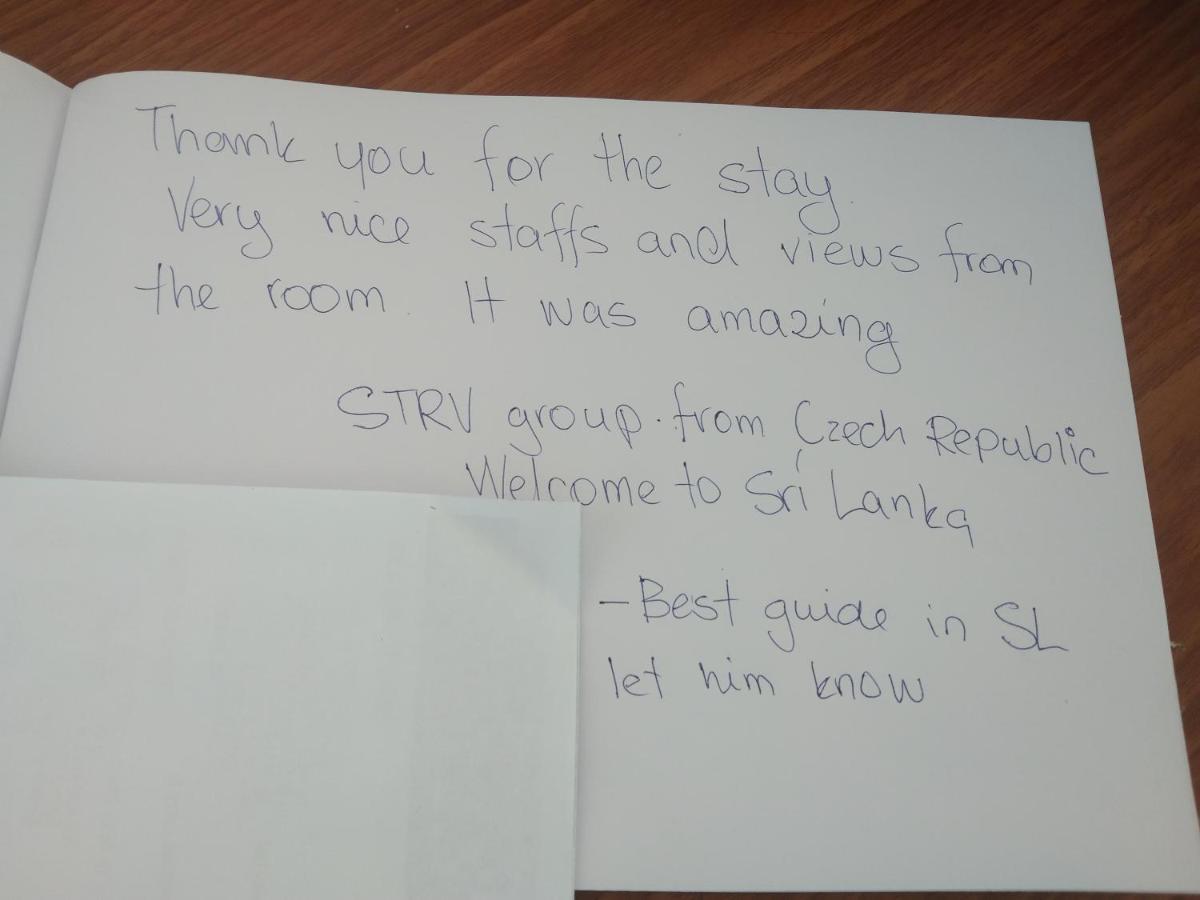 Thank you for the stay.
Very nice staffs and views from
the room. It was amazing
STRV group. from Czech Republic
Welcome to Sri Lanka
- Best guide in SL
let him know